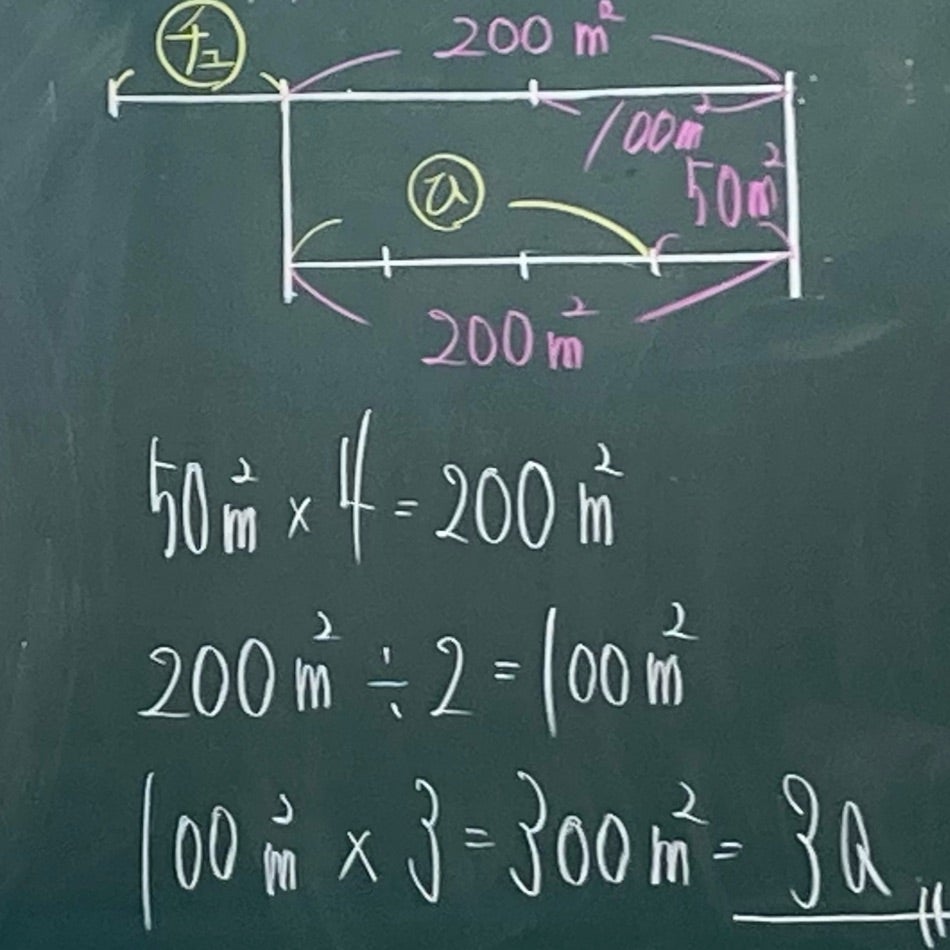 チュ 200m²
100m²
50m²
あ
200m²
50m² × 4 = 200m²
200m² ÷ 2 = 100m²
100m² × 3 = 300m² = 3a